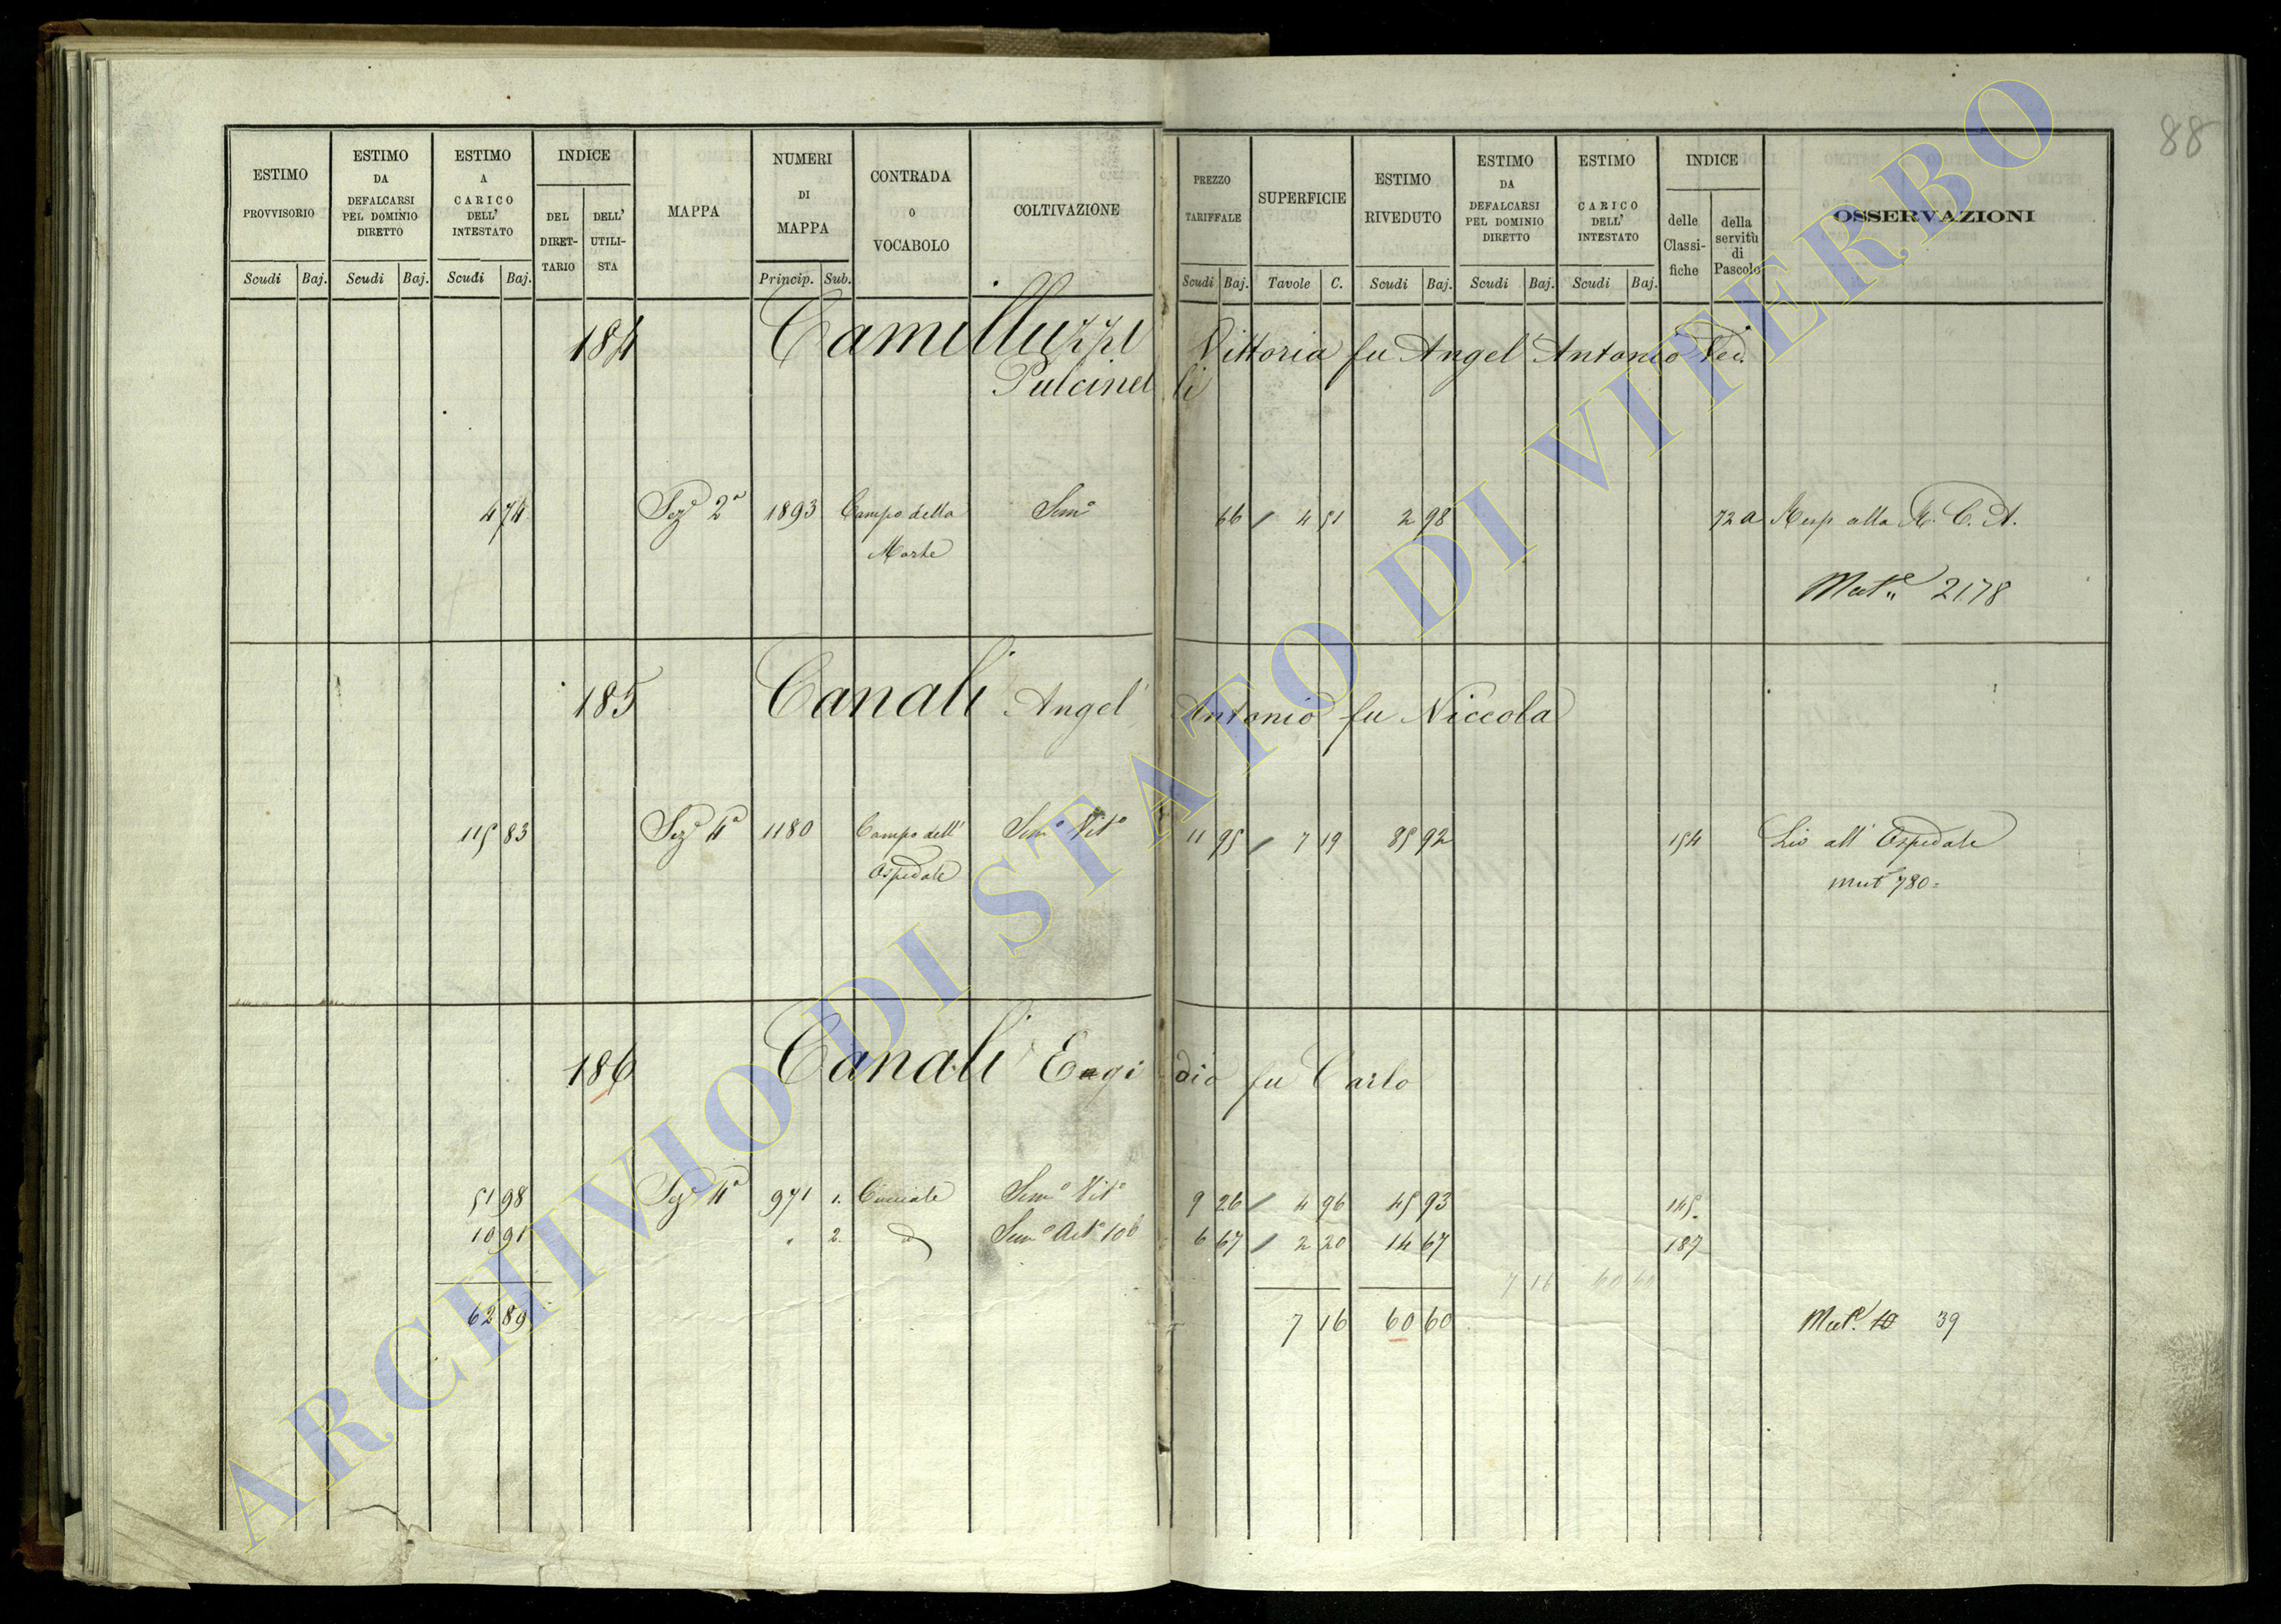 88
ESTIMO PROVVISORIO Scudi Baj.
ESTIMO DA DEFALCARSI PEL DOMINIO DIRETTO Scudi Baj.
ESTIMO A CARICO DELL' INTESTATO Scudi Baj.
INDICE DEL DIRET-TARIO DELL' UTILI-STA
MAPPA
NUMERI DI MAPPA Princip. Sub.
CONTRADA O VOCABOLO
COLTIVAZIONE
PREZZO TARIFFALE Scudi Baj.
SUPERFICIE Tavole C.
ESTIMO RIVEDUTO Scudi Baj.
ESTIMO DA DEFALCARSI PEL DOMINIO DIRETTO Scudi Baj.
ESTIMO A CARICO DELL' INTESTATO Scudi Baj.
INDICE delle Classi-fiche della servitù di Pascolo
OSSERVAZIONI
184 Camilluzzi Vittoria fu Angel' Antonio Ved.
Pulcinelli
4 74 Sezᵉ 2ª 1893 Campo della Semº 66 / 4 51 2 98 72 a Resp alla R. C. A.
Morte
Mutᵉ 2178
185 Canali Angel' Antonio fu Niccola
115 83 Sezᵉ 4ª 1180 Campo dell' Semº Vitº 11 95 / 7 19 85 92 154 Liv all' Ospedale
Ospedale
mut 780=
186 Canali Eagidio fu Carlo
51 98 Sezᵉ 4ª 971 1. Semº Vitº 9 26 / 4 96 45 93 145.
10 91 " 2. d Semº 106 6 67 / 2 20 14 67 187
7 16 60 60
62 89 7 16 60 60 Mutᵉ. 10 39
ARCHIVIO DI STATO DI VITERBO